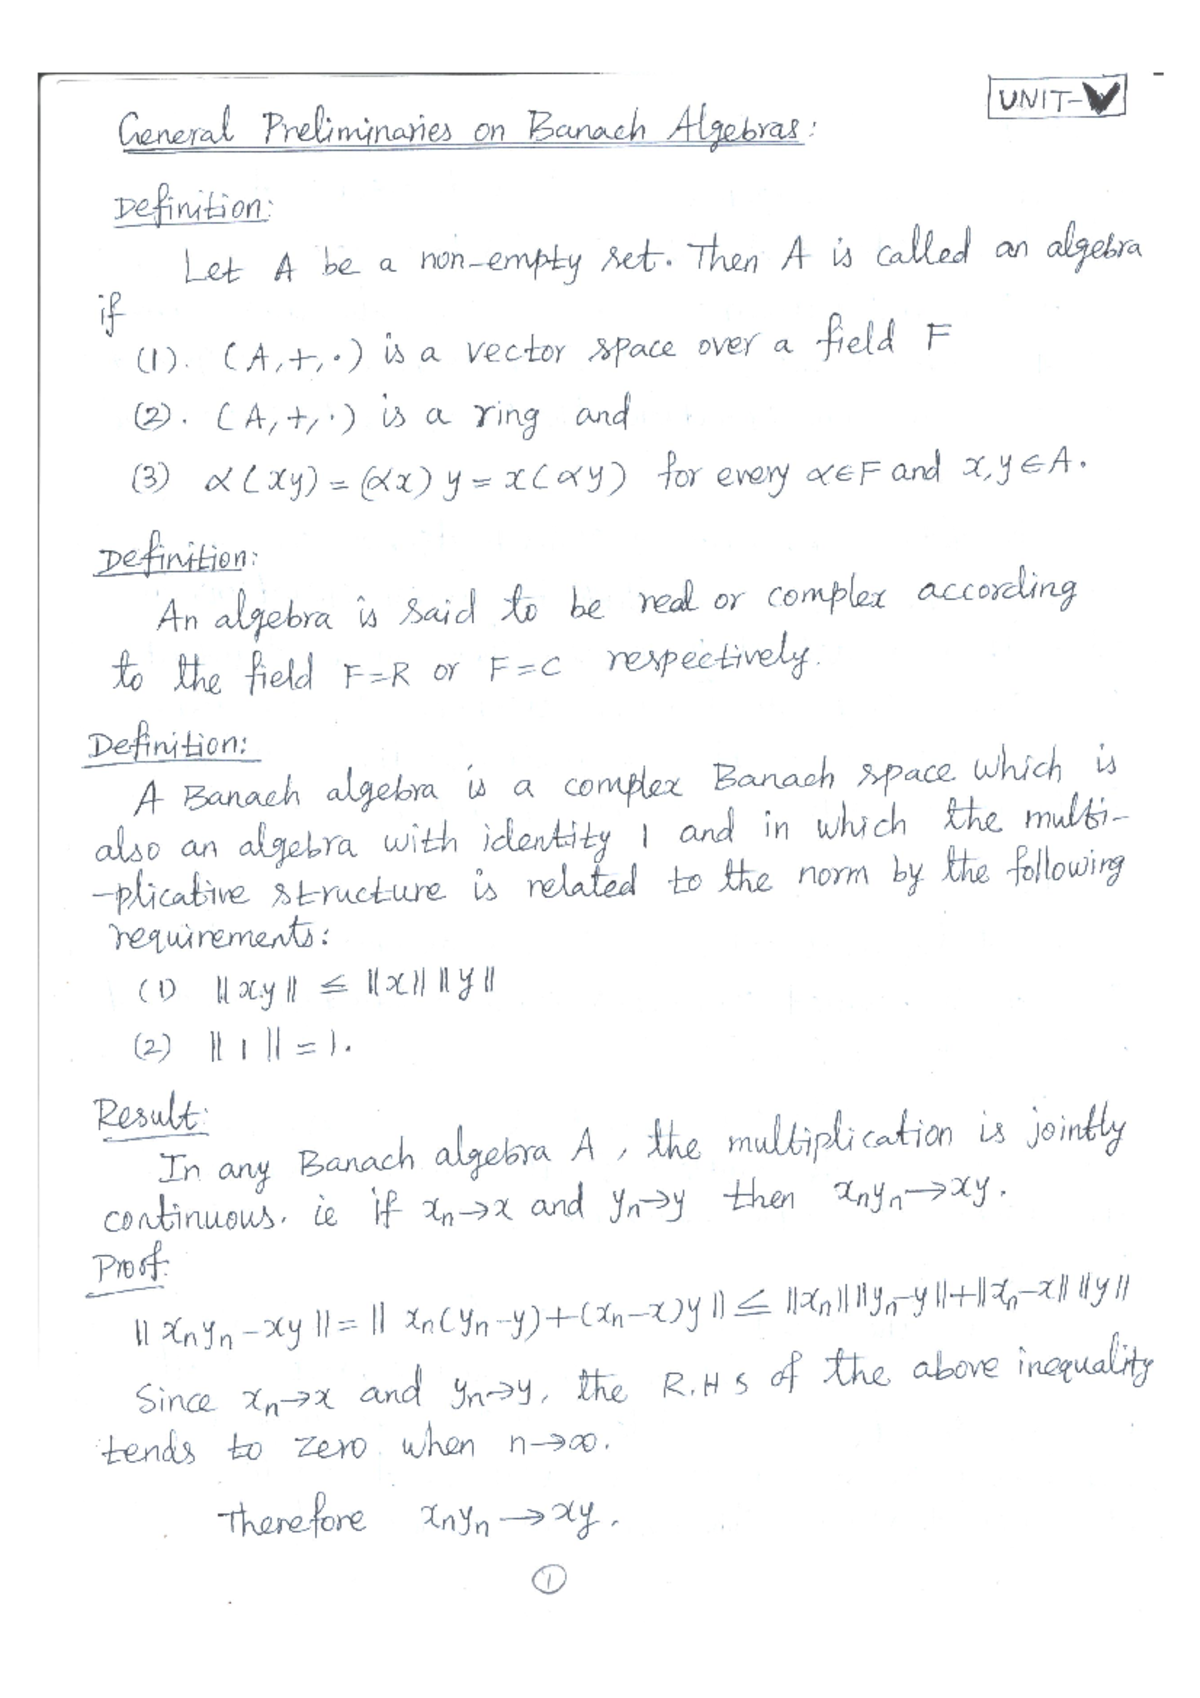 UNIT-V
General Preliminaries on Banach Algebras:
Definition:
Let A be a non-empty set. Then A is called an algebra
if
(1). (A,+,·) is a vector space over a field F
(2). (A,+,·) is a ring and
(3) α(xy) = (αx)y = x(αy) for every α∈F and x,y∈A.
Definition:
An algebra is said to be real or complex according
to the field F=R or F=C respectively.
Definition:
A Banach algebra is a complex Banach space which is
also an algebra with identity 1 and in which the multi-
-plicative structure is related to the norm by the following
requirements:
(1) ||xy|| ≤ ||x|| ||y||
(2) ||1|| = 1.
Result:
In any Banach algebra A, the multiplication is jointly
continuous. ie if xₙ→x and yₙ→y then xₙyₙ→xy.
Proof:
||xₙyₙ-xy|| = ||xₙ(yₙ-y)+(xₙ-x)y|| ≤ ||xₙ|| ||yₙ-y||+||xₙ-x|| ||y||
Since xₙ→x and yₙ→y, the R.H.S of the above inequality
tends to zero when n→∞.
Therefore xₙyₙ→xy.
1